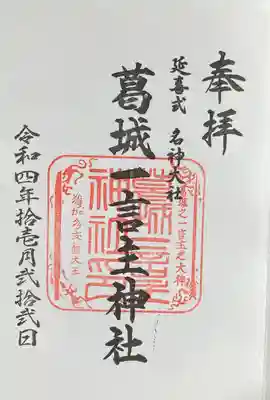 奉拝
延喜式 名神大社
葛城一言主神社
令和四年拾壱月弐拾弐日
葛城一言主
神社印